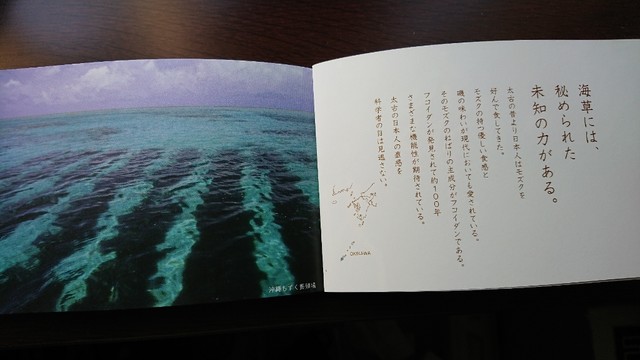 海草には、
秘められた
未知の力がある。
太古の昔より日本人はモズクを
好んで食してきた。
モズクの持つ優しい食感と
磯の味わいが現代においても愛されている。
そのモズクのねばりの主成分がフコイダンである。
フコイダンが発見されて約100年
さまざまな機能性が期待されている。
太古の日本人の直感を
科学者の目は見逃さない。
OKINAWA
沖縄もずく養殖場